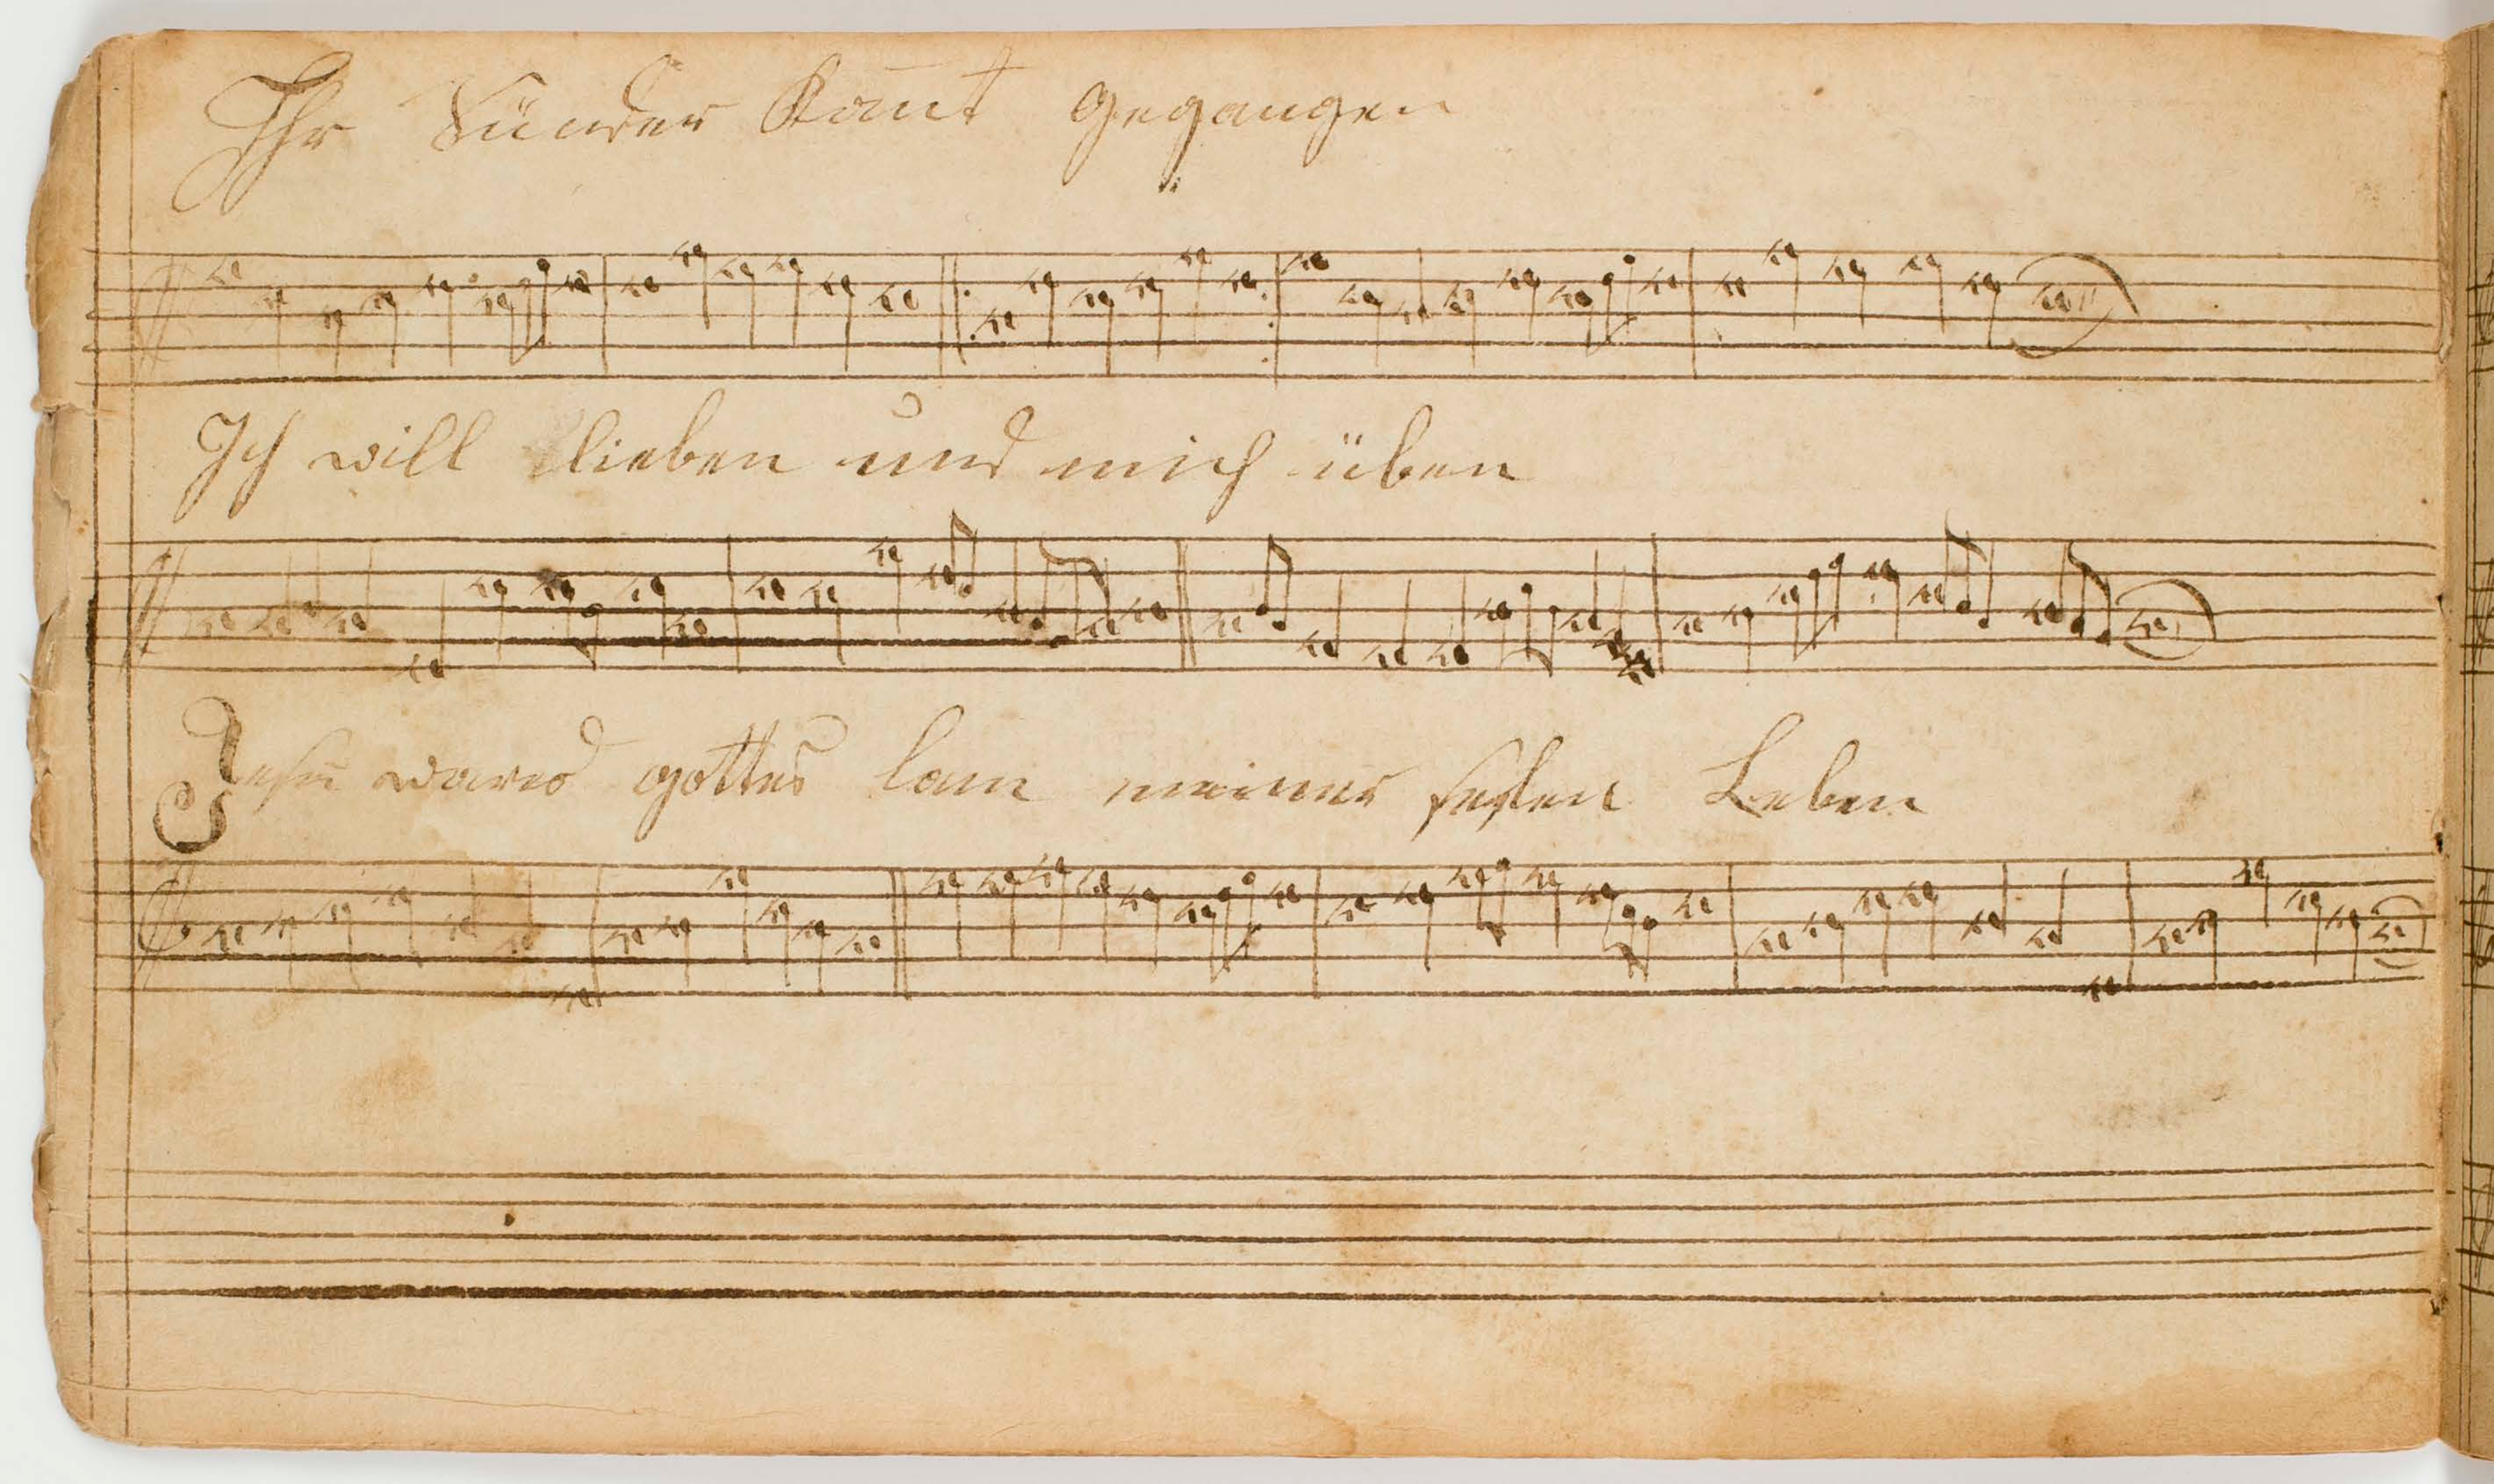 Ihr Sünder komt gegangen
Ich will lieben und mich üben
Jesu wares gottes lam meiner selen Leben